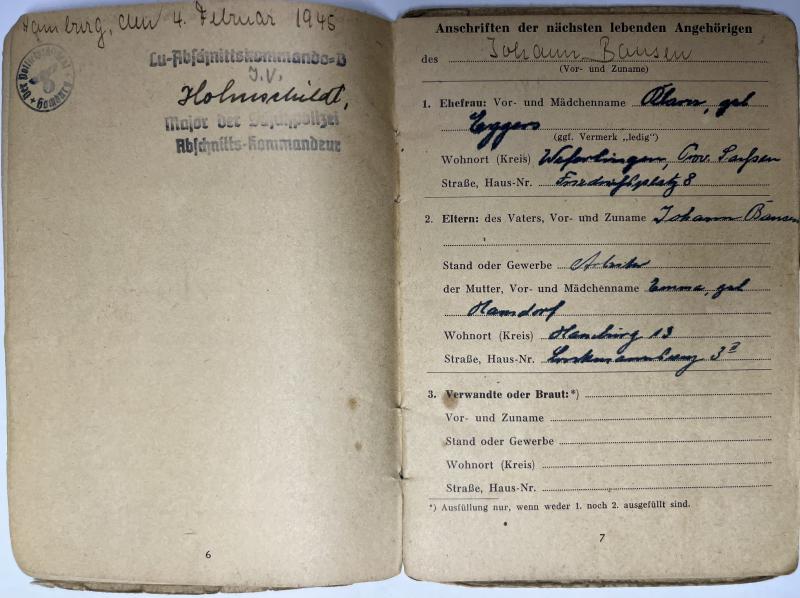 Hamburg, den 4. Februar 1945
Der Polizeipräsident
Hamburg
Lu-Abschnittskommando-B
I.V.
Holmschildt,
Major der Schutzpolizei
Abschnitts-Kommandeur
6
Anschriften der nächsten lebenden Angehörigen
des Johann Bansen
(Vor- und Zuname)
1. Ehefrau: Vor- und Mädchenname Klara, geb
Eggers
(ggf. Vermerk „ledig")
Wohnort (Kreis) Weferlingen, Prov. Sachsen
Straße, Haus-Nr. Friedrichsplatz 8
2. Eltern: des Vaters, Vor- und Zuname Johann Bansen
Stand oder Gewerbe Arbeiter
der Mutter, Vor- und Mädchenname Emma, geb
Hansdorf
Wohnort (Kreis) Hamburg 13
Straße, Haus-Nr.
3. Verwandte oder Braut:*)
Vor- und Zuname
Stand oder Gewerbe
Wohnort (Kreis)
Straße, Haus-Nr.
*) Ausfüllung nur, wenn weder 1. noch 2. ausgefüllt sind.
7